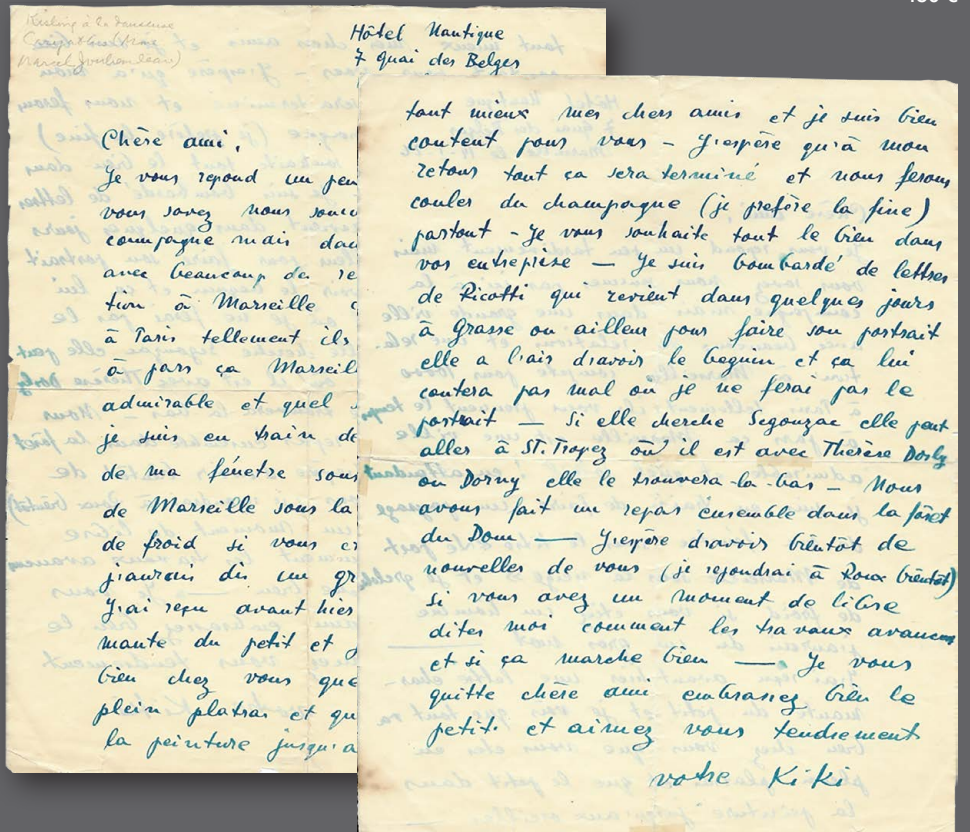 Kisling à la danseuse
Marcel Jouhandeau)
Hôtel Nautique
7 Quai des Belges
Chère ami,
Je vous repond un peu
vous savez nous
compagne mais dan
avec beaucoup de re
tion à Marseille
à Paris tellement ils
à pars ça Marseil
admirable et quel
je suis en train de
de ma fénetre sou
de Marseille sous la
de froid si vous
j'aurais du un gr
J'ai reçu avant hier
mante du petit et
bien chez vous que
plein platras et qu
la peinture jusqu'a
tout mieux mes chers amis et je suis bien
content pour vous — J'espère qu'à mon
retour tout ça sera terminé et nous ferons
couler du champagne (je prefère la fine)
partout - Je vous souhaite tout le bien dans
vos entreprise — Je suis bombardé de lettres
de Ricotti qui revient dans quelques jours
à Grasse ou ailleur pour faire son portrait
elle a l'rais d'ravois le beguin et ça lui
coutera pas mal ou je ne ferai pas le
portrait — Si elle cherche Segonzac elle peut-
aller à St. Tropez ou il est avec Thérèse Dorly
ou Dorny elle le trouvera-la-bas — Nous
avons fait un repas ensemble dans la fôret
du Dom — J'espère d'ravois biêntot de
nouvelles de vous (je repondrai à Roux biêntôt)
si vous avez un moment de libre
dites moi comment les travaux avances
et si ça marche bien — Je vous
quitte chère ami embrassez bien le
petit. et aimez vous tendrement
votre KiKi